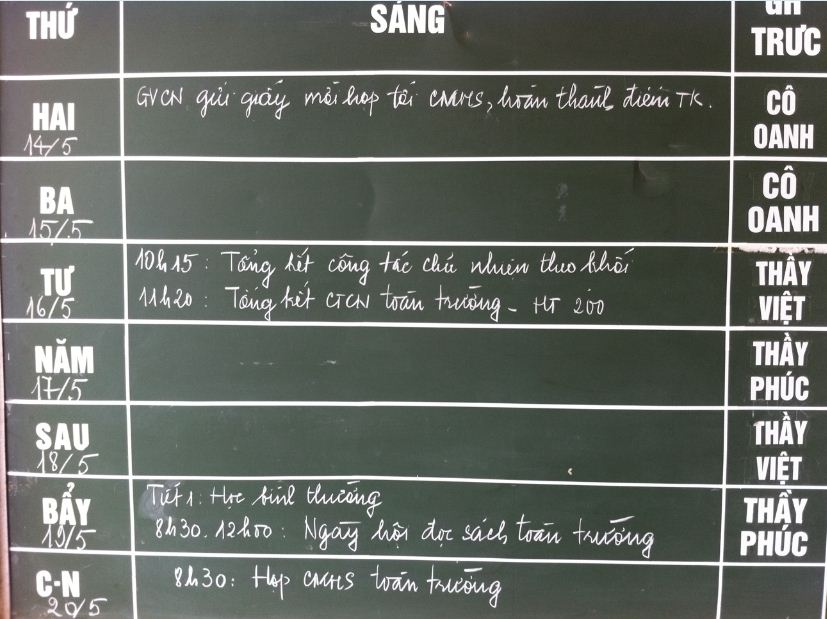 THỨ SÁNG GH TRỰC
HAI 14/5 GVCN gửi giấy mời họp tới CMHS, hoàn thành điểm TK. CÔ OANH
BA 15/5 CÔ OANH
TƯ 16/5 10h15: Tổng kết công tác chủ nhiệm theo khối THẦY VIỆT
11h20: Tổng kết CTCN toàn trường - HT 200
NĂM 17/5 THẦY PHÚC
SAU 18/5 THẦY VIỆT
BẨY 19/5 Tiết 1: Học bình thường THẦY PHÚC
8h30. 12h00: Ngày hội đọc sách toàn trường
C-N 20/5 8h30: Họp CMHS toàn trường